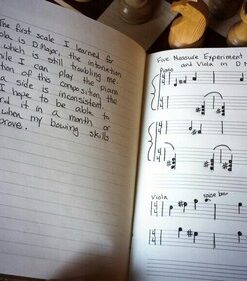 The first scale I learned for
ola is D Major, the intonation
which is still troubling me.
ile I can play the piano
tion of this composition, the
a side is inconsistent.
I hope to be able to
rd it in a month or
when my bowing skills
prove.
Five Measure Experiment
and Viola in D M
Piano
4
4
4
4
Viola
4
4
4
4